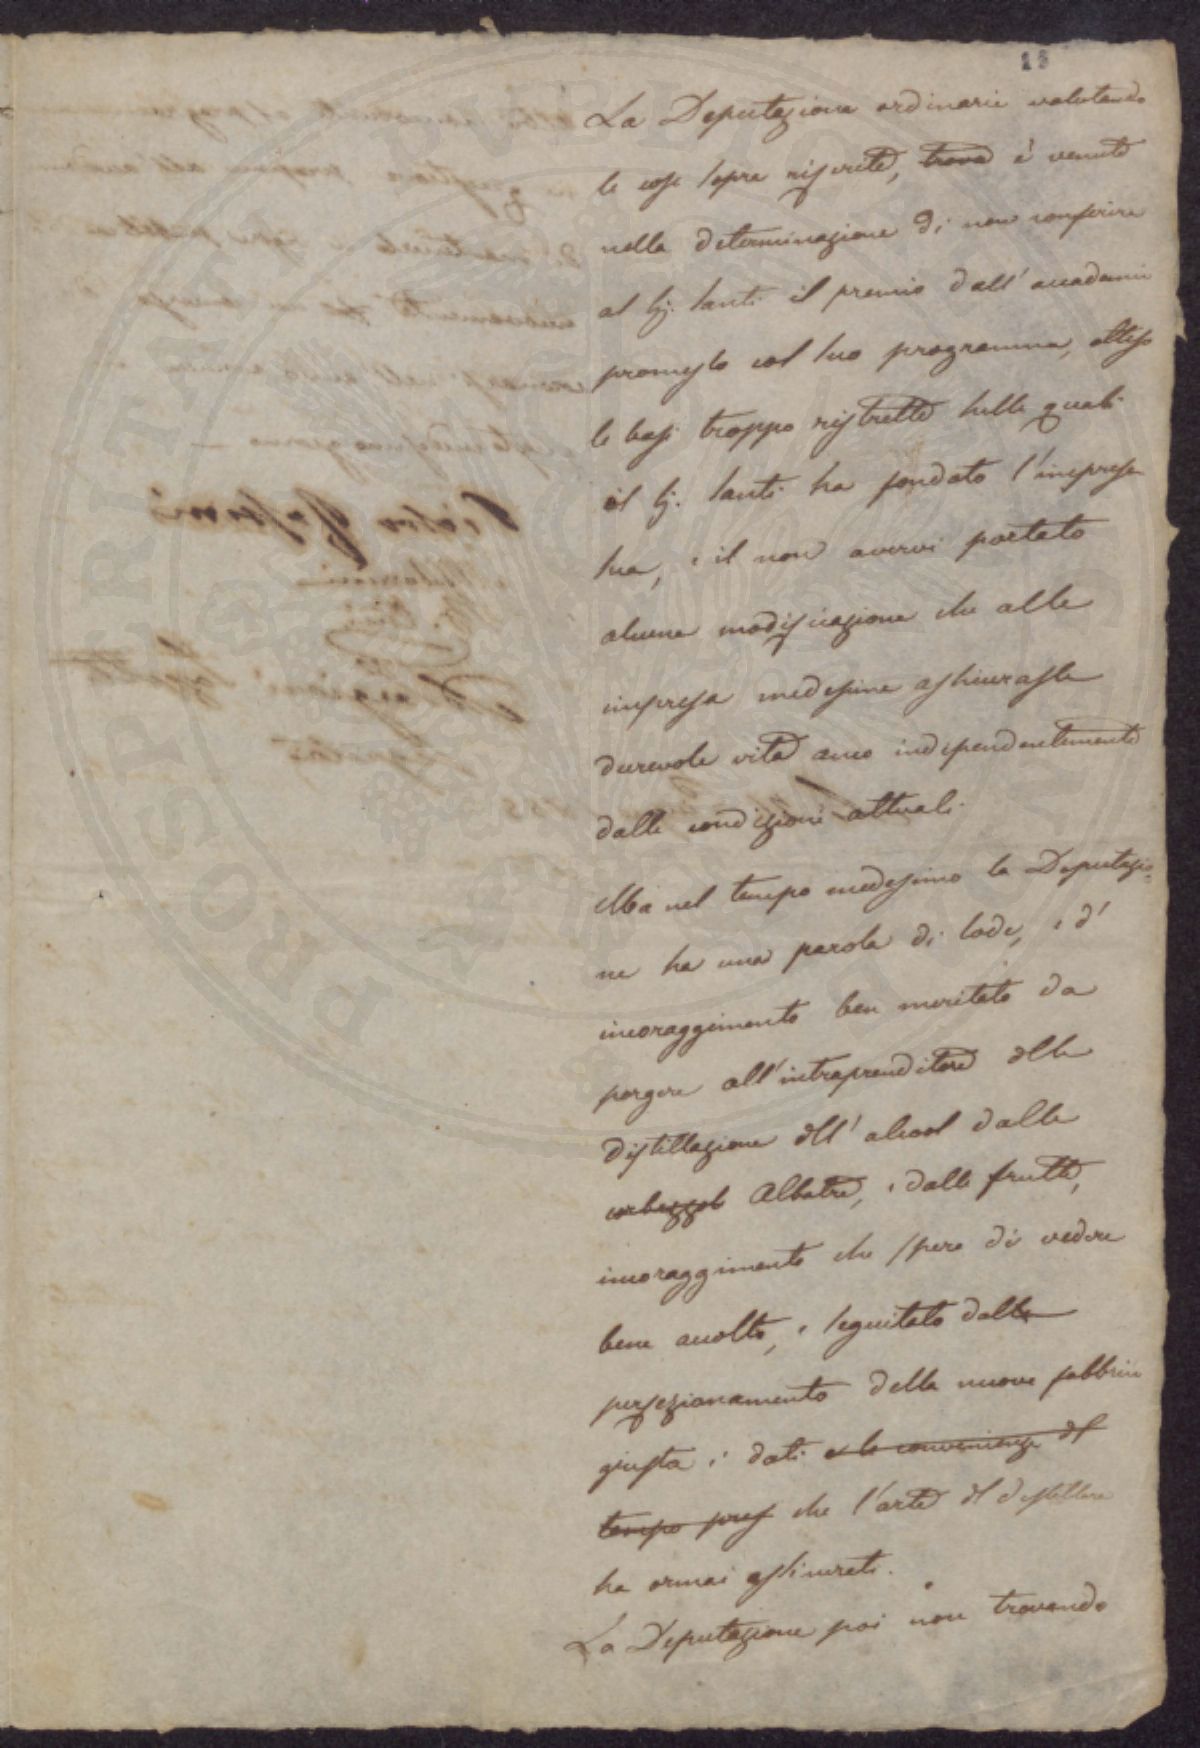 13
La Deputazione ordinaria valutando
le cose sopra riferite, trova è venuta
nella determinazione di non conferire
al Sig. Santi il premio dall'accademia
promesso col suo programma, atteso
le basi troppo ristrette sulle quali
il Sig. Santi ha fondato l'impresa
sua, e il non avervi portato
alcuna modificazione che alla
impresa medesima assicurasse
durevole vita anco indipendentemente
dalle condizioni attuali.
Ma nel tempo medesimo la Deputazio=
ne ha una parola di lode, e d'
incoraggimento ben meritato da
porgere all'intraprenditore della
distillazione dell'alcool dalle
corbezzole Albatre, e dalle frutta,
incoraggimento che spera di vedere
bene accolto, e seguitato dalla
perfezionamento della nuova fabbrica
giusta i dati e le convenienze del
tempo pres che l'arte del distillare
ha ormai assicurati.
La Deputazione poi non trovando